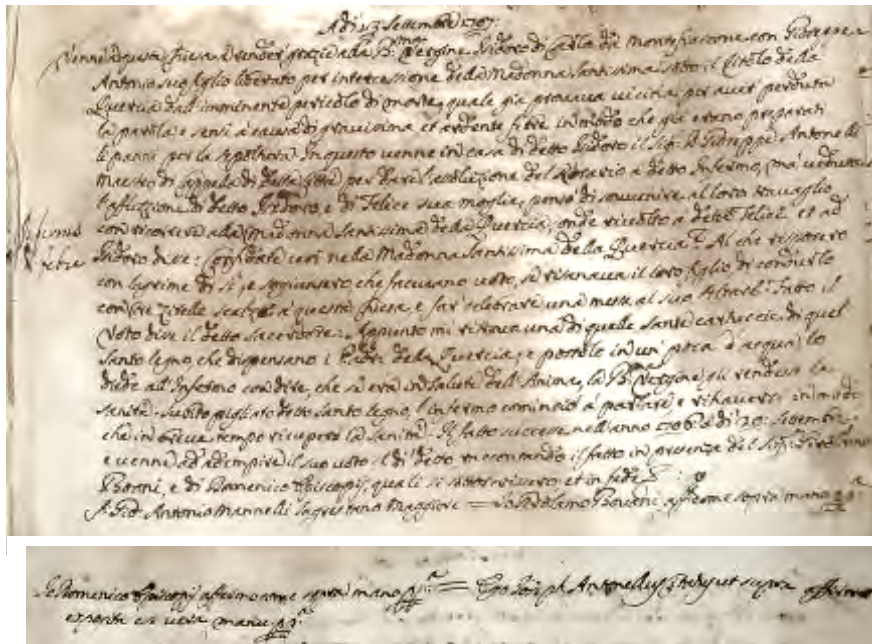 A di 13 Settembre 1707:
Venne a questa Chiesa a render grazie alla B: Vergine Isidoro di Carlo da Montefiascone con Gioseppe
Antonio suo figlio liberato per intercessione della Madonna Santissima sotto il titolo della
Quercia dall'imminente pericolo di morte, quale già provava vicina per aver perduta
la parola e sensi a causa di gravissima et ardente febre in modo che già erano preparati
li panni per la sepoltura. In questo venne in casa di detto Isidoro il Sig: D. Gioseppe Antonelli
Maestro di Cappella di detta Città per dare l'assoluzione del Rosario a detto Infermo, mà veduta
l'afflizzione di detto Isidoro, e di Felice sua moglie, pensò di souvenire al loro travaglio
con ricorrere alla Madonna Santissima della Quercia, onde rivolto a detta Felice et ad
Infirmus
Febre
Isidoro disse: Confidate voi nella Madonna Santissima della Quercia? Al che risposero
con lagrime di sì, e sogiunsero che facevano voto, se risanava il loro figlio, di condurlo
con tre zitelle scalze à questa Chiesa, e far celebrare una messa al suo Altare. Fatto il
voto disse il detto sacerdote: Appunto mi ritrovo una di quelle sante cartuccie di quel
Santo legno, che dispensano i Padri della Quercia, e postolo in un poca d'acqua lo
diede all'Infermo con dire, che se era in salute dell'Anima, la B: Vergine gli rendesse la
sanità. Subito pigliato detto santo legno, l'infermo cominciò à parlare, e rihaversi in modo
che in breve tempo ricuperò la sanità. Il fatto successe nell'anno 1706 a di 29: Settembre
e venne ad adempire il suo voto il dì detto raccontando il fatto in presenza del Sig:
e di Domenico Episcopij, quali si sottoscrivero et in fede
F. Gio: Antonio Mannelli Sagrestano Maggiore = Io Girolamo affermo sopra mano pp.a
Io Domenico Episcopij affermo come sopra mano pp.a = Ego Joseph Antonellus ut supra affirmo
exposita esse vera manu pp.a